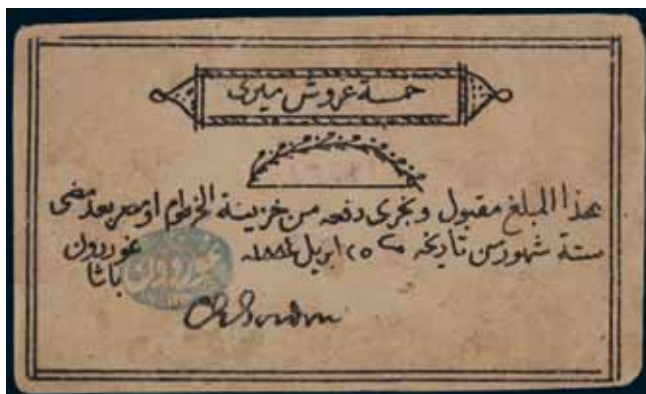 خمسة غروش ميرى
هذا المبلغ مقبول ويجرى دفعه من خزينة الخرطوم او مصر بعد مضى
ستة شهور من تاريخه ٢٥ ابريل ١٨٨٤
غوردون
باشا
C G Gordon